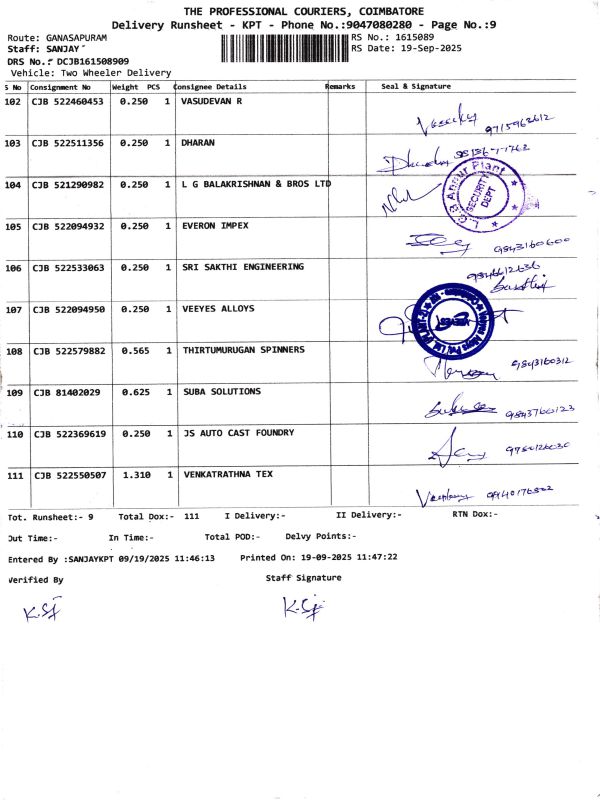 THE PROFESSIONAL COURIERS, COIMBATORE
Delivery Runsheet - KPT - Phone No.:9047080280 - Page No.:9
Route: GANASAPURAM
RS No.: 1615089
Staff: SANJAY
RS Date: 19-Sep-2025
DRS No.: DCJB161508909
Vehicle: Two Wheeler Delivery
S No Consignment No Weight PCS Consignee Details Remarks Seal & Signature
102 CJB 522460453 0.250 1 VASUDEVAN R
9715962612
103 CJB 522511356 0.250 1 DHARAN
104 CJB 521290982 0.250 1 L G BALAKRISHNAN & BROS LTD
L.G.B Annur Plant
SECURITY DEPT
105 CJB 522094932 0.250 1 EVERON IMPEX
9843160600
106 CJB 522533063 0.250 1 SRI SAKTHI ENGINEERING
107 CJB 522094950 0.250 1 VEEYES ALLOYS
108 CJB 522579882 0.565 1 THIRTUMURUGAN SPINNERS
9843160312
109 CJB 81402029 0.625 1 SUBA SOLUTIONS
9843760123
110 CJB 522369619 0.250 1 JS AUTO CAST FOUNDRY
111 CJB 522550507 1.310 1 VENKATRATHNA TEX
Tot. Runsheet:- 9 Total Dox:- 111 I Delivery:- II Delivery:- RTN Dox:-
Out Time:- In Time:- Total POD:- Delvy Points:-
Entered By :SANJAYKPT 09/19/2025 11:46:13 Printed On: 19-09-2025 11:47:22
Verified By Staff Signature